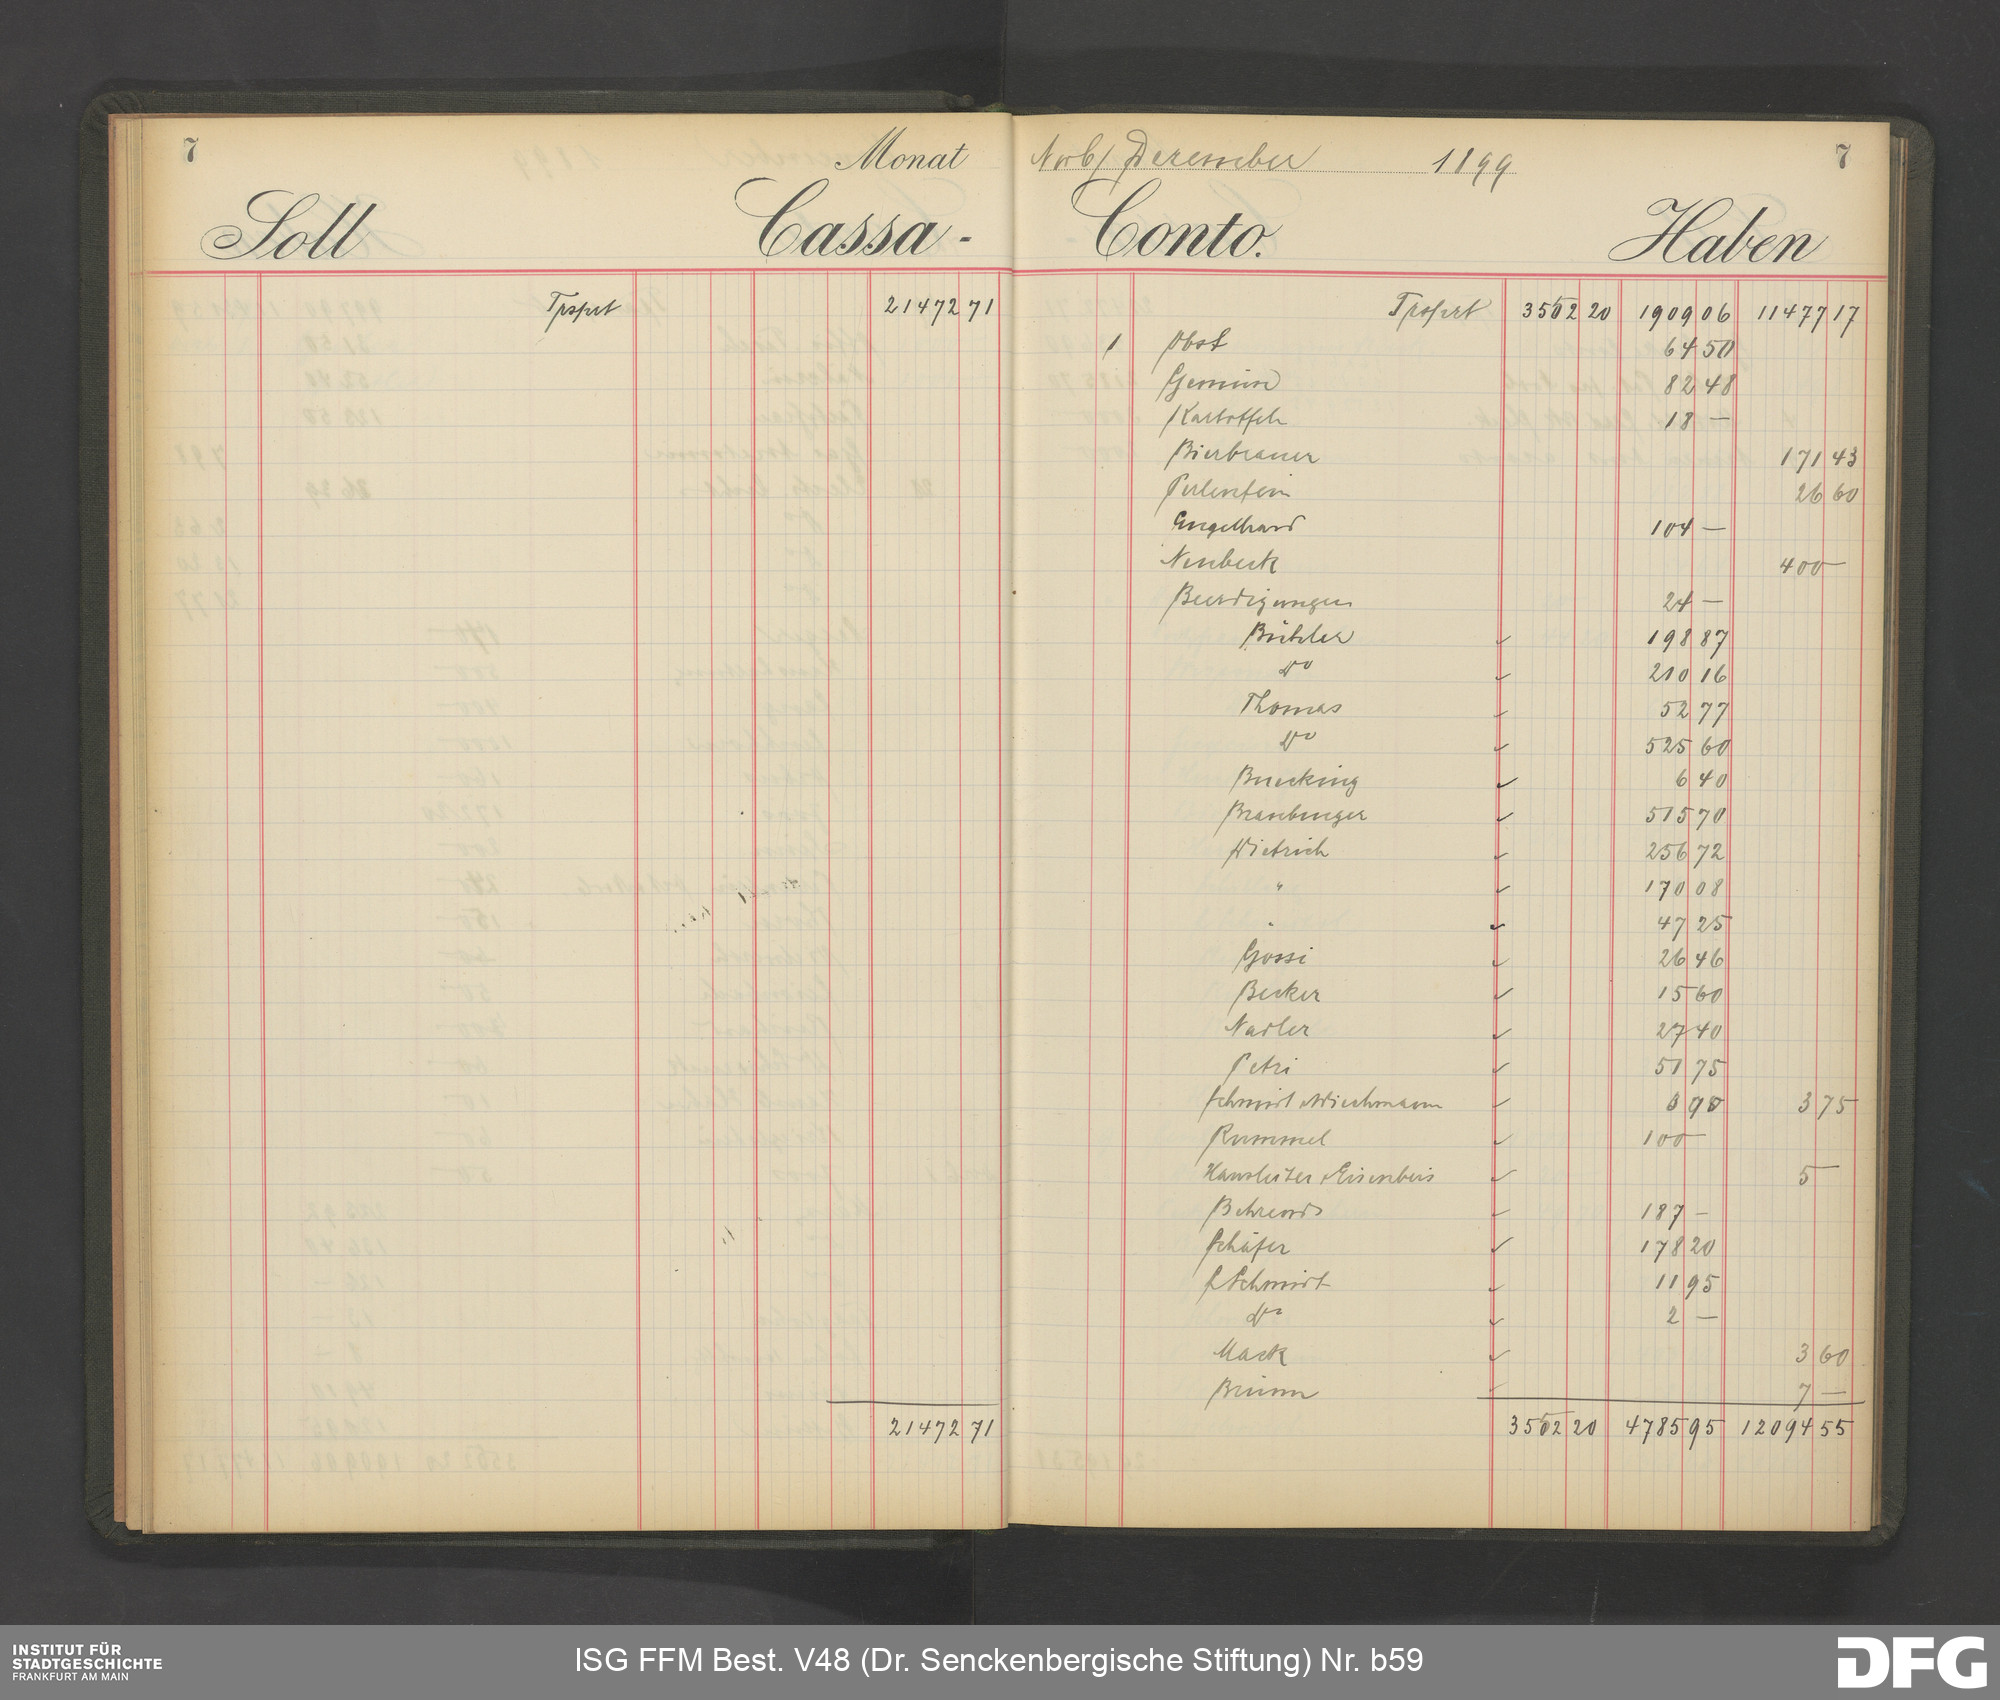 7
Monat Novb/ Dezember 1899
7
Soll Cassa-Conto. Haben
Trsport 21472 71
21472 71
Trsport 3502 20 1909 06 11477 17
1 Obst 64 50
Gemüse 82 48
Kartoffeln 18 —
Bierbrauer 171 43
Perlenfein 26 60
Engelhard 104 —
Neubeck 400 —
Beerdigungen 24 —
Bütler 198 87
do 210 16
Thomas 52 77
do 525 60
Buecking 6 40
Braubinger 515 70
Dietrich 256 72
" 170 08
" 47 25
Gossi 26 46
Becker 15 60
Nadler 27 40
Petri 51 75
Schmidt & Wiechmann 3 75
Rummel 100 —
Hausleiter & Eisenbeis 5 —
Behrends 187 —
Schäfer 178 20
L Schmidt 11 95
do 2 —
Mack 3 60
Brünn 7 —
3502 20 4785 95 12094 55
INSTITUT FÜR
STADTGESCHICHTE
FRANKFURT AM MAIN
ISG FFM Best. V48 (Dr. Senckenbergische Stiftung) Nr. b59
DFG